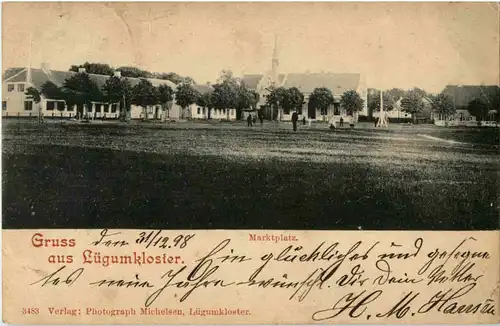 Gruss den 31/12 98 Marktplatz.
aus Lügumkloster. Ein glückliches und gesegne-
tes neues Jahr wünscht Dir Dein Vetter
3483 Verlag: Photograph Michelsen, Lügumkloster. H. M. Hansen